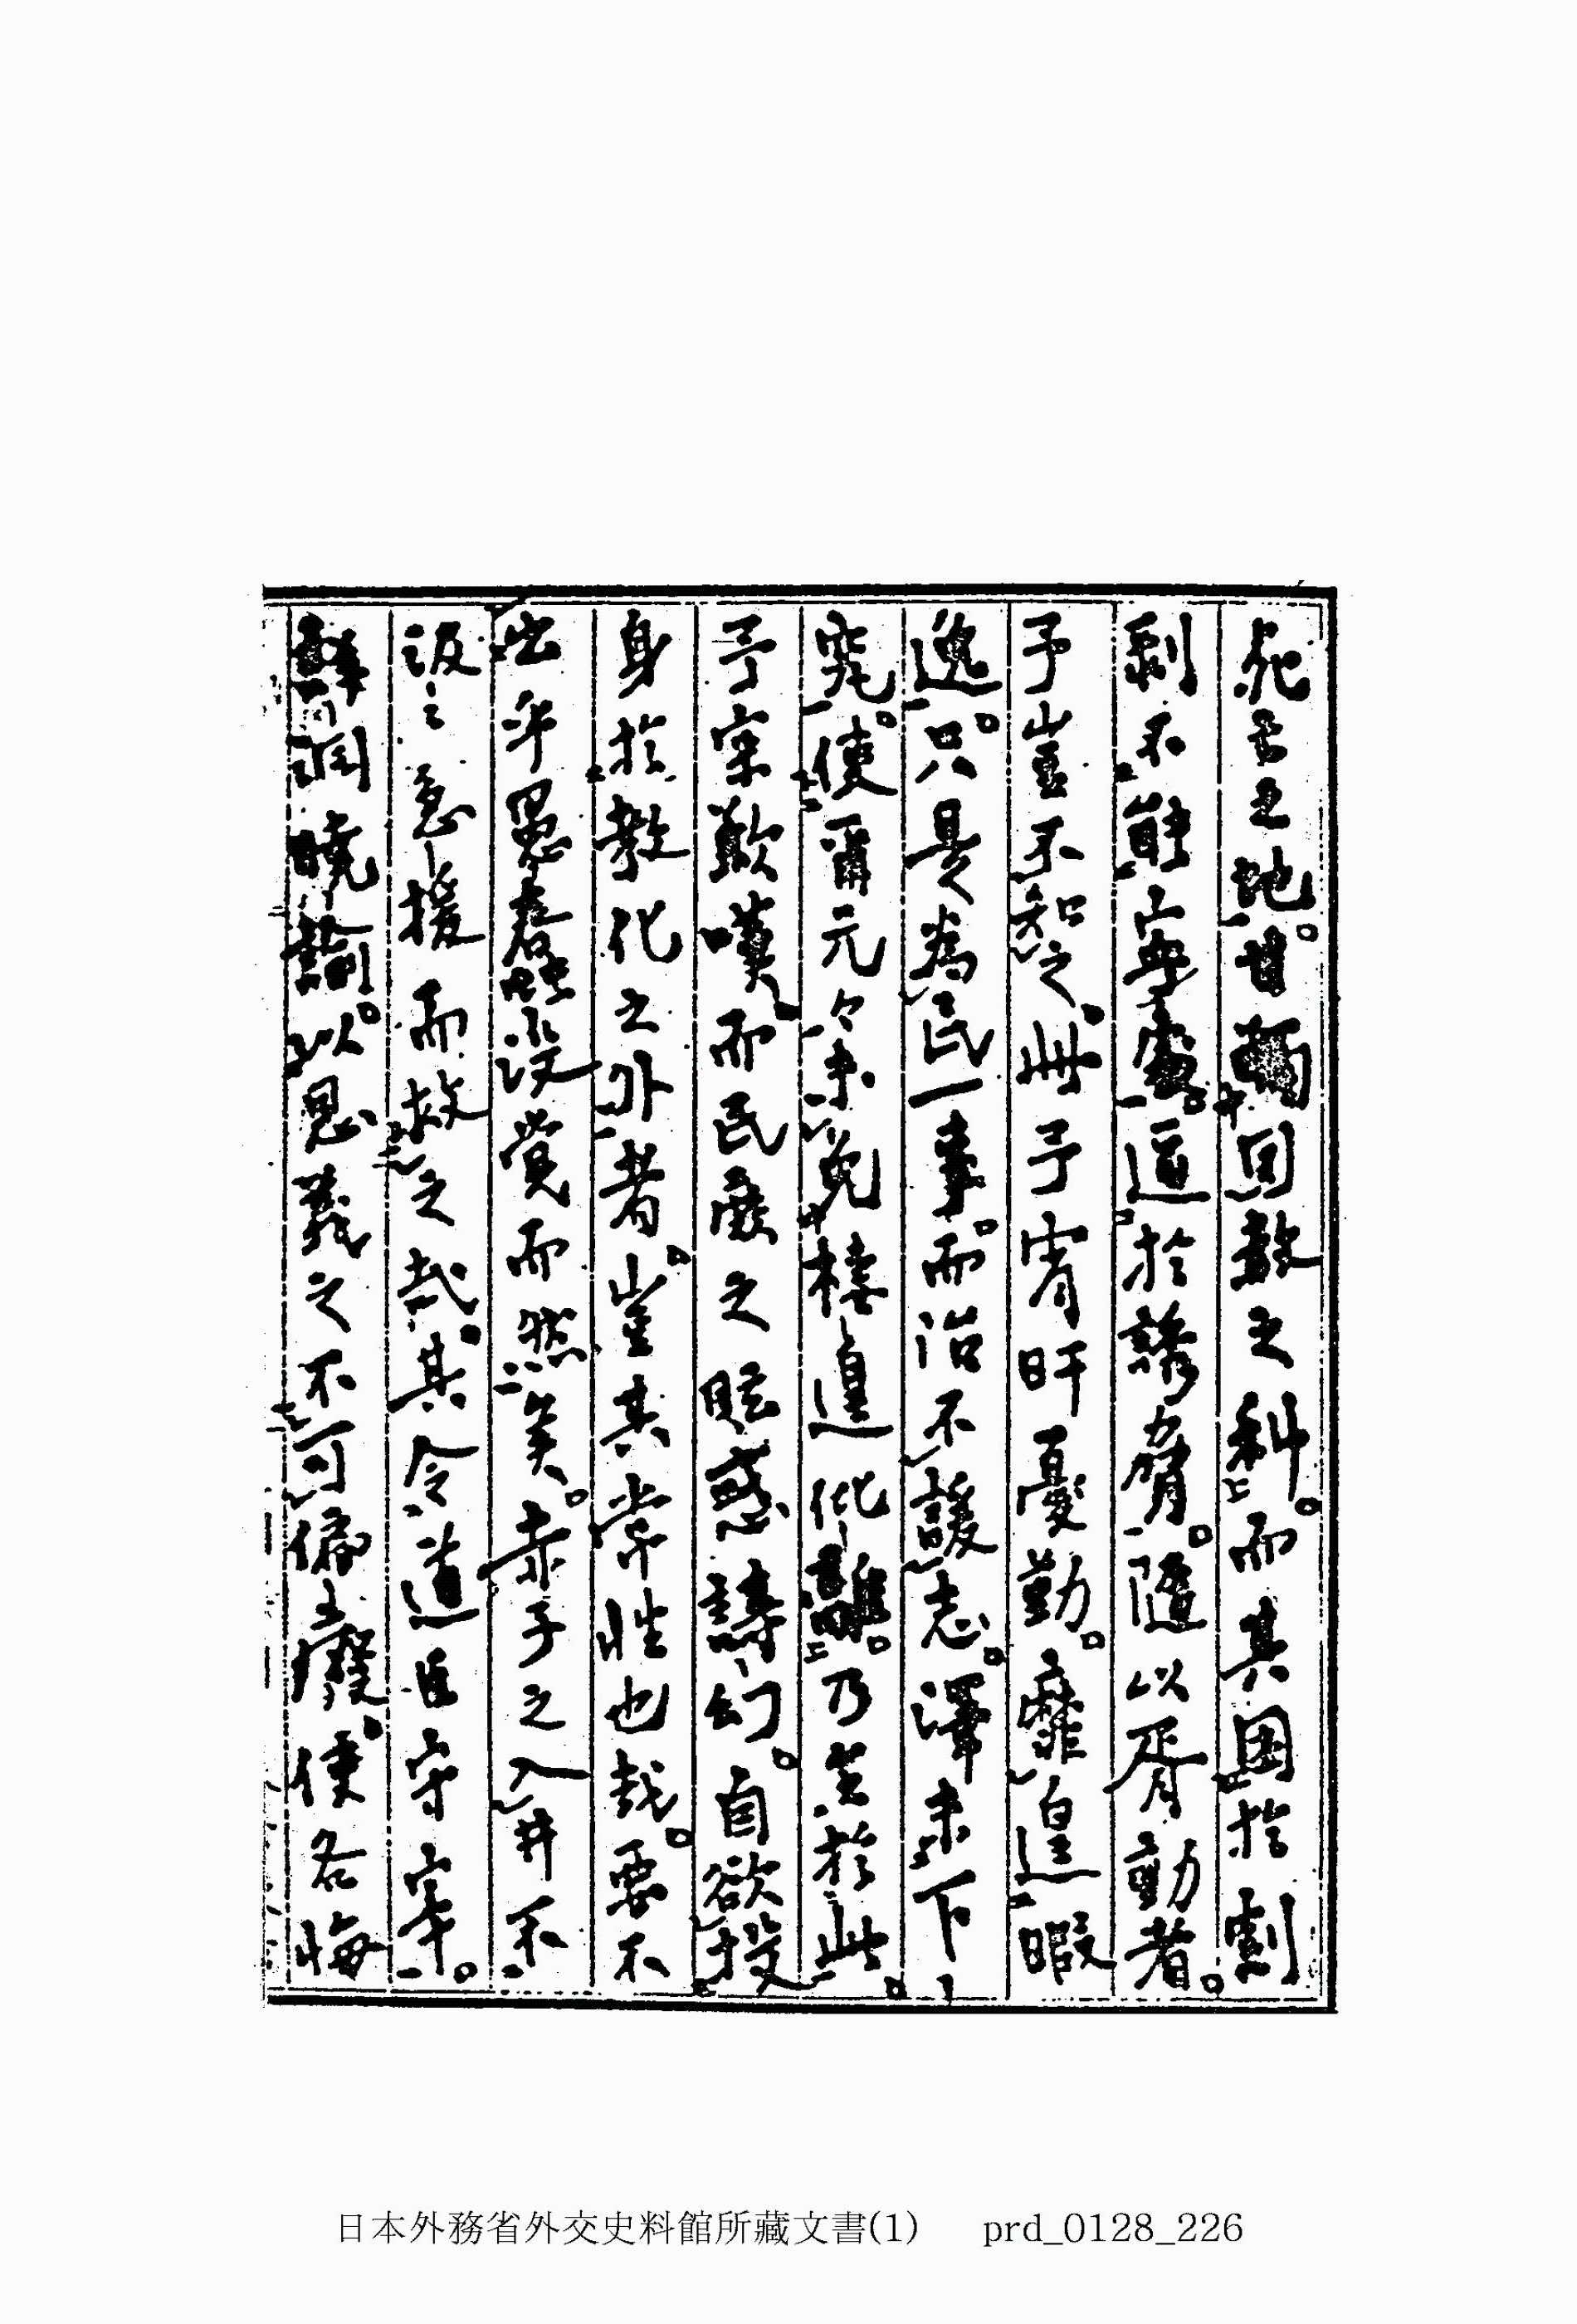 死亡之地。甘爾回教之科。而其困於割
剝不能寧處。逼於誘脅。隨以胥動者。
予豈不知之。此予宵旰憂勤。靡遑暇
逸。只是為民一事。而治不諼志。澤未下
究。使爾元々未免棲遑仳離。乃至於此。
予寔歎嘆而民處之眩惑譸幻。自欲投
身於教化之外者。豈其常性也哉。要不
出乎愚蠢沒覺而然矣。赤子之入井不
汲々急援而救之哉。其令道臣守宰。
詳細曉諭。以恩義之不可偏廢。使各悔
日本外務省外交史料館所藏文書(1) prd_0128_226